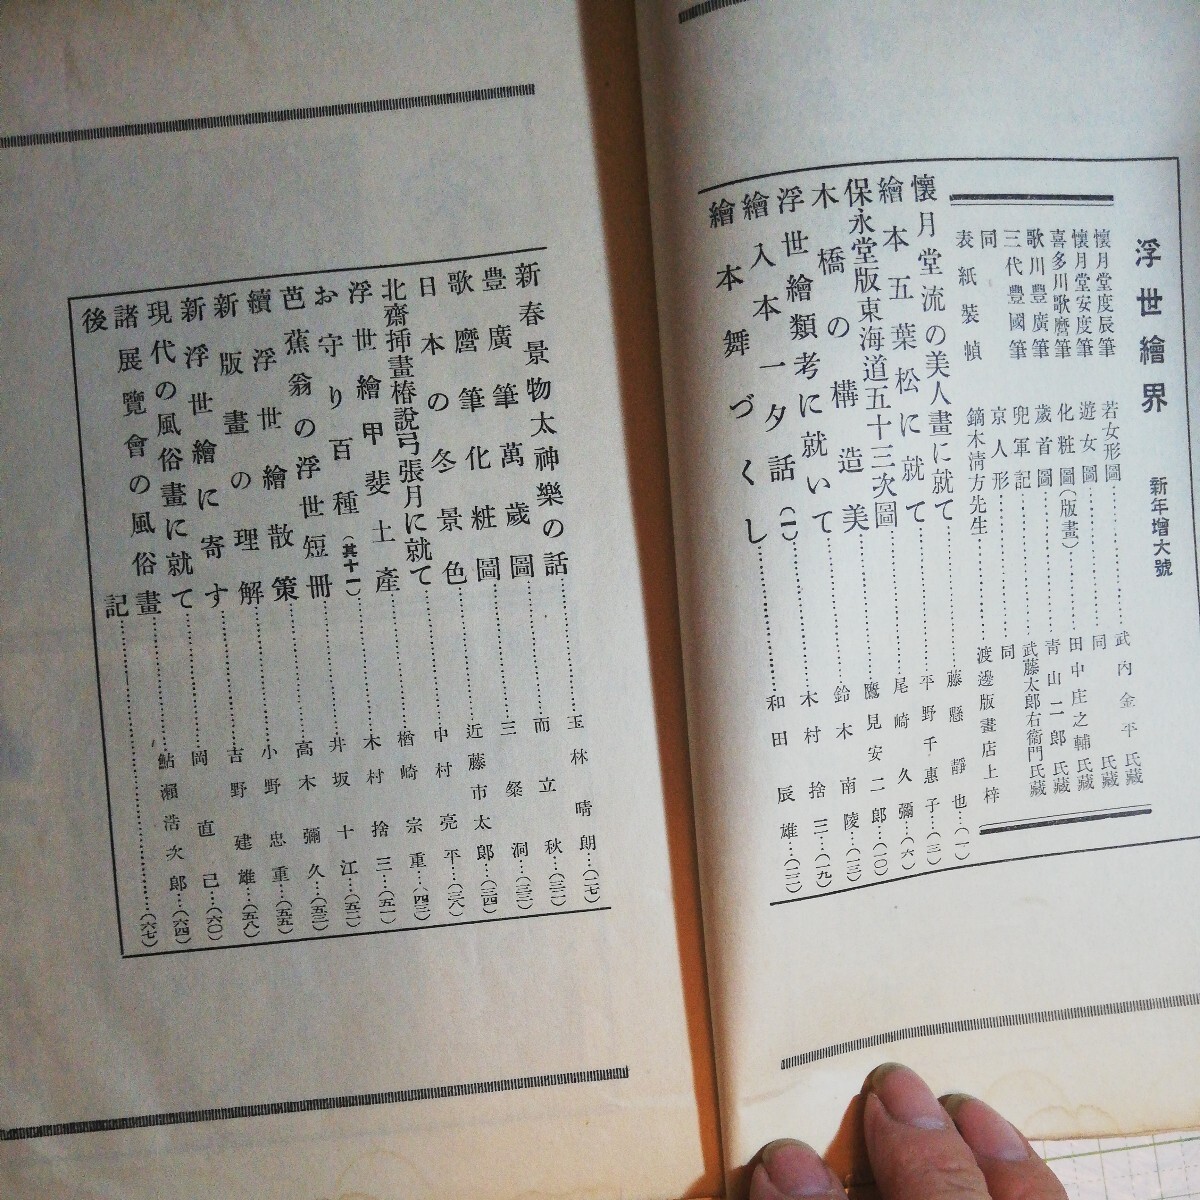 浮世繪界 新年增大號
懷月堂度辰筆 若女形圖………武內金平氏藏
懷月堂安度筆 遊女圖………同 氏藏
喜多川歌麿筆 化粧圖(版畫)………田中庄之輔氏藏
歌川豊廣筆 歲首圖………靑山二郎氏藏
三代豊國筆 兜軍記………武藤太郎右衞門氏藏
同 京人形………同
表紙裝幀 鏑木淸方先生………渡邊版畫店上梓
懷月堂流の美人畫に就て………藤懸靜也…(一)
繪本五葉松に就て………平野千惠子…(三)
保永堂版東海道五十三次圖………尾崎久彌…(六)
木橋の構造美………鷹見安二郎…(一〇)
浮世繪類考に就いて………鈴木南陵…(一三)
繪入本一夕話(一)………木村捨三…(一九)
繪本舞づくし………和田辰雄…(二二)
新春景物太神樂の話………玉林晴朗…(二七)
豊廣筆萬歲圖………而立秋…(三二)
歌麿筆化粧圖………三粲洞…(三三)
日本の冬景色………近藤市太郎…(三四)
北齋挿畫椿說弓張月に就て………中村亮平…(三八)
浮世繪甲斐土產………楢崎宗重…(四三)
お守り百種(其十一)………木村捨三…(五一)
芭蕉翁の浮世短冊………井坂十江…(五二)
續浮世繪散策………高木彌久…(五三)
新版畫の理解………小野忠重…(五五)
新浮世繪に寄す………吉野建雄…(五八)
現代の風俗畫に就て………岡直己…(六〇)
諸展覽會の風俗畫………鮎瀨浩次郎…(六四)
後記………(六七)